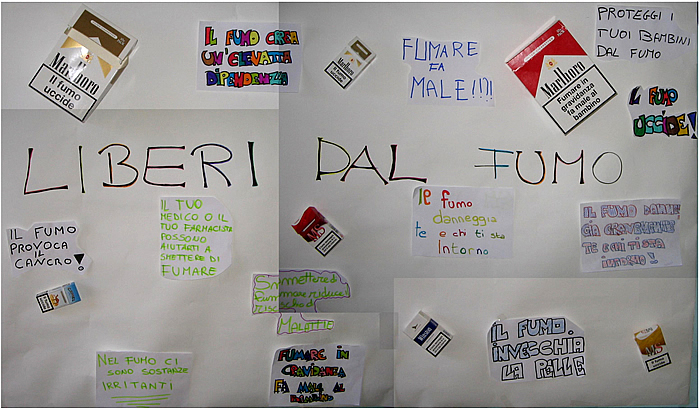 Marlboro
Il fumo
uccide
IL FUMO CREA
UN'ELEVATTA
DIPENDENZA
Marlboro
FUMARE
FA
MALE!!!!
Marlboro
Fumare in
gravidanza
fa male al
bambino
PROTEGGI I
TUOI BAMBINI
DAL FUMO
IL FUMO
UCCIDE!
LIBERI DAL FUMO
IL FUMO
PROVOCA
IL
CANCRO!
IL TUO
MEDICO O IL
TUO FARMACISTA
POSSONO
AIUTARTI A
SMETTERE DI
FUMARE
MS
Ie fumo
danneggia
te e chi ti sta
Intorno
IL FUMO DANNEG
GIA GRAVEMENTE
TE E CHI TI STA
INTORNO!
Smettere di
fumare riduce il
rischio di
MALATTIE
NEL FUMO CI
SONO SOSTANZE
IRRITANTI
FUMARE IN
GRAVIDANZA
FA MALE AL
BAMBINO
IL FUMO
INVECCHIA
LA PELLE